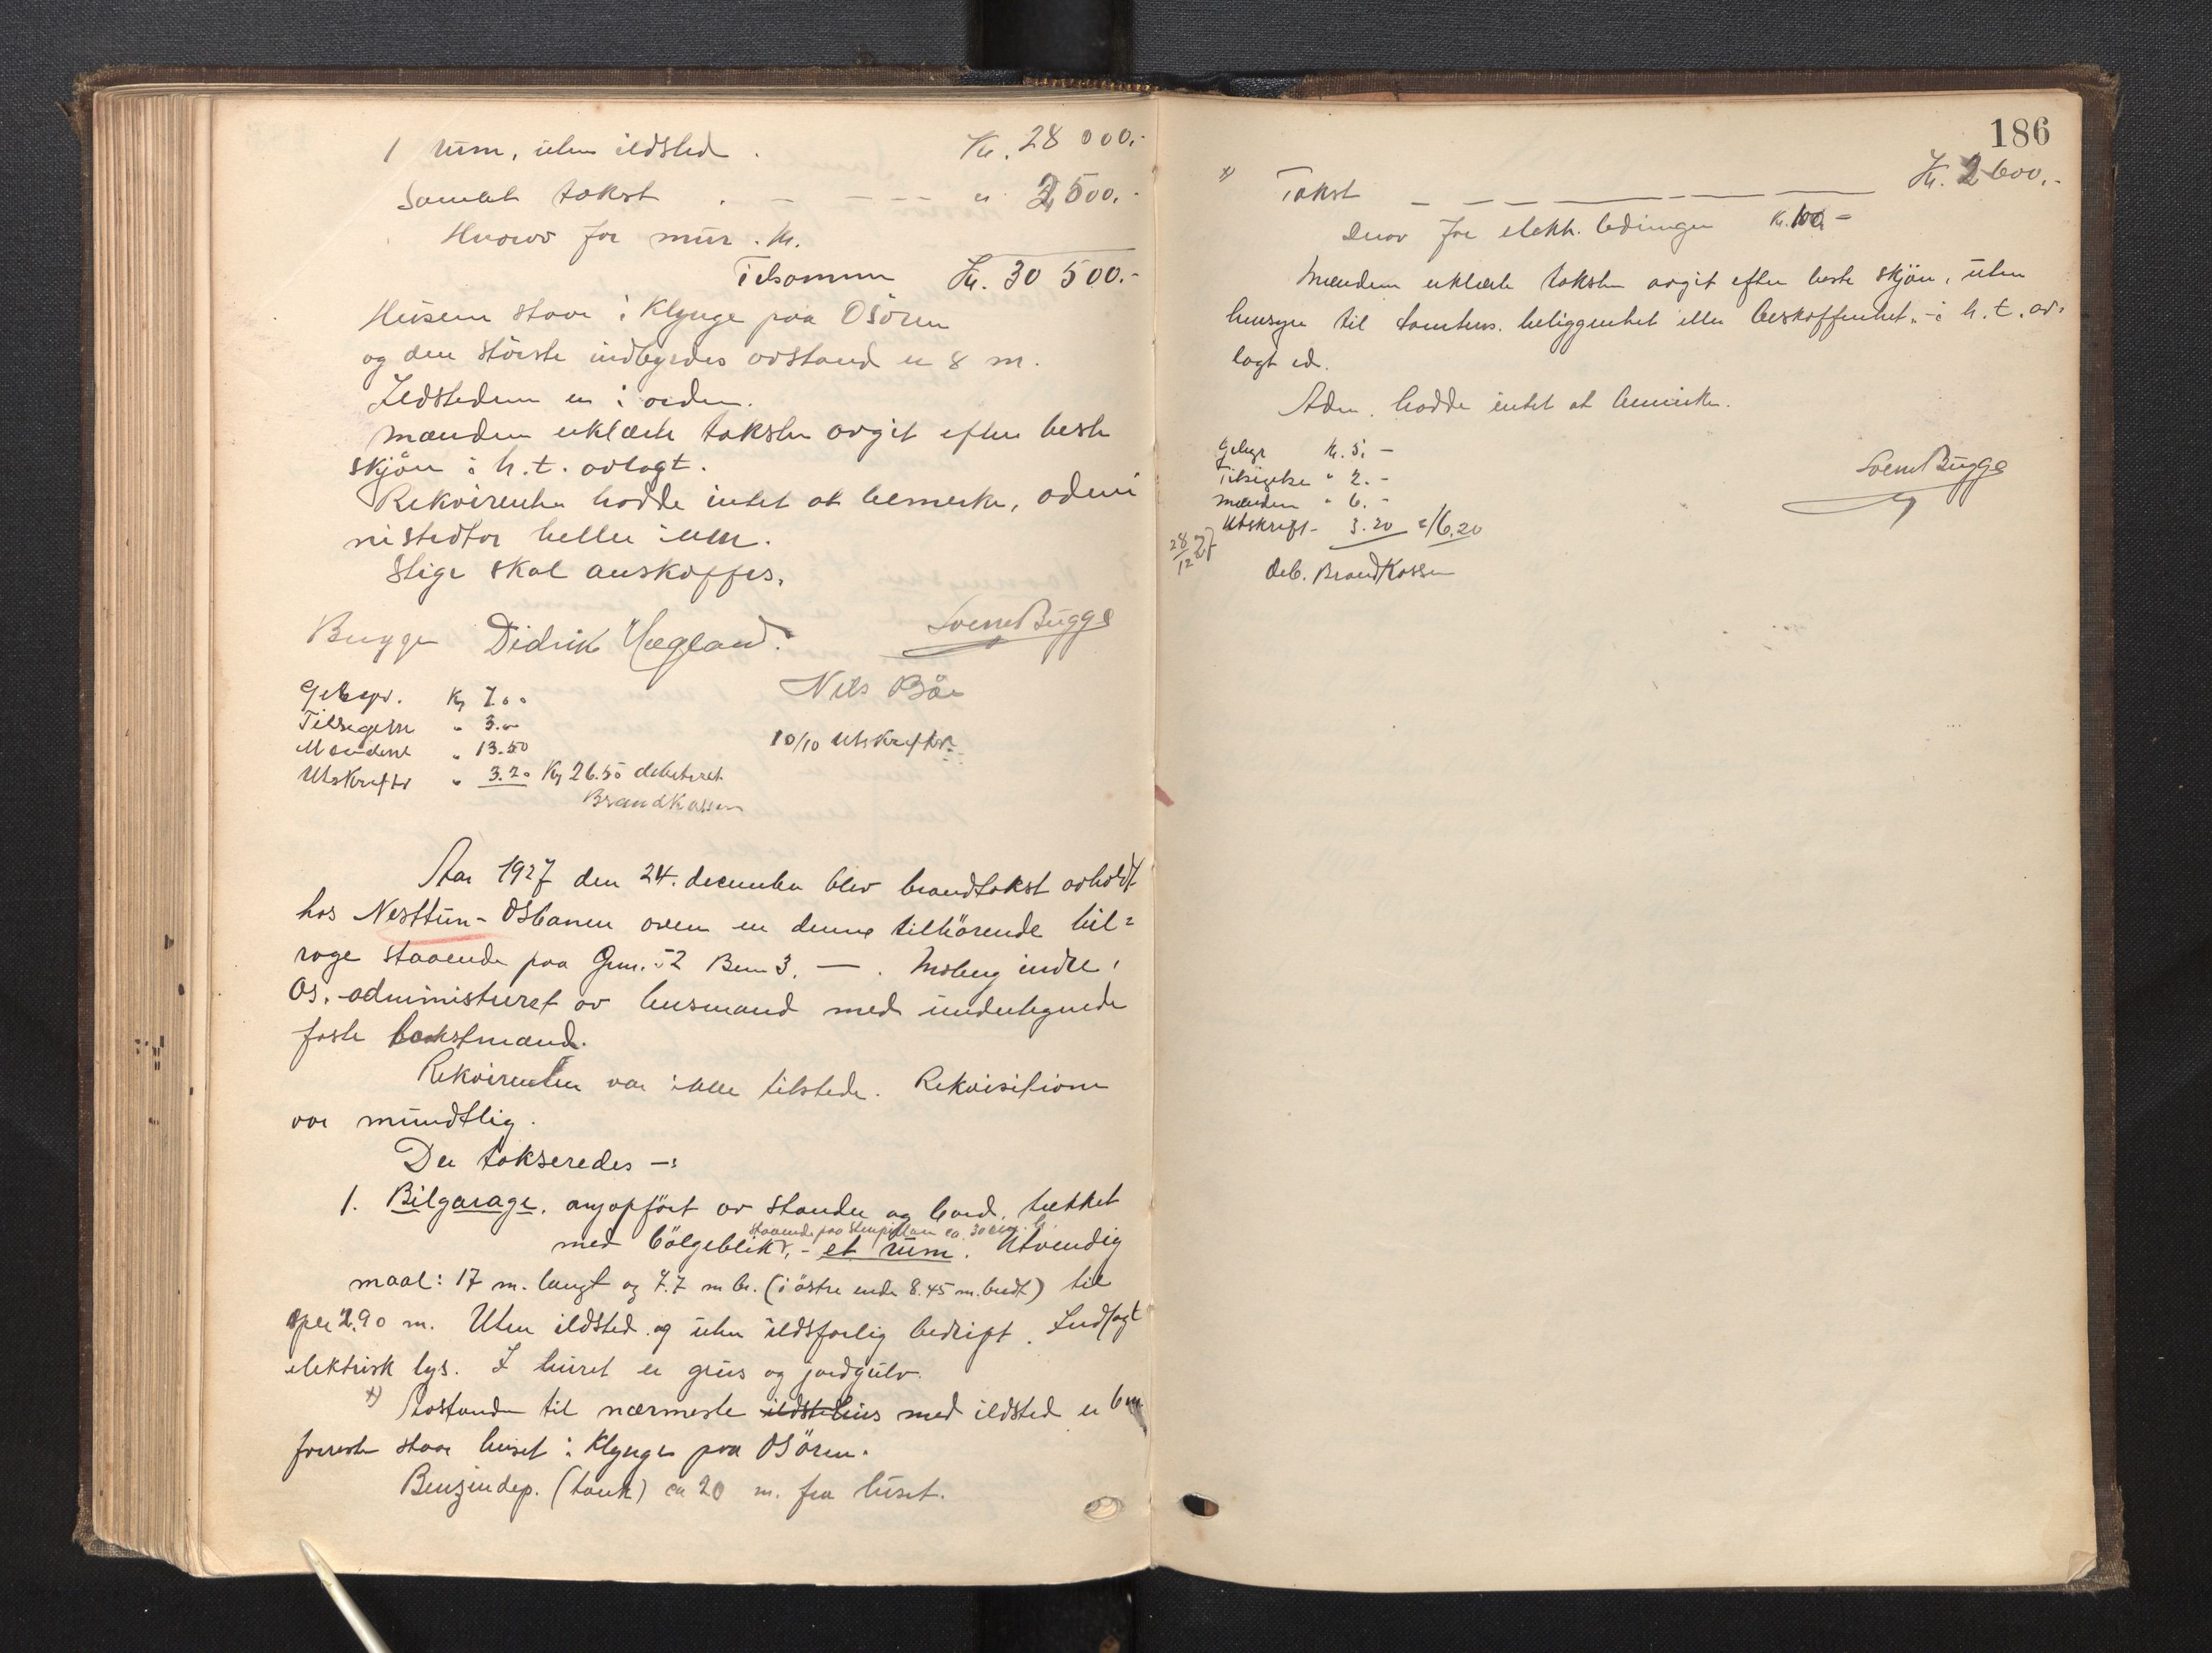 1 rum, uten ildsted . Kr. 28 000.-
Samlet takst . - - - - " 2500.-
Hvorav for mur . Kr.
Tilsammen Kr. 30 500.-
Husene staar i Klynge paa Osören
og den störste indbyrdes avstand er 8 m.
Ildstedene er i orden.
Mændene erklærte taksten avgit efter beste
skjön i h. t. avlagt.
Rekvirenten hadde intet at bemerke, admi
nistrator heller ikke.
Stige skal anskaffes.
Bugge Didrik Hægland. Sverre Bugge
Nils Böe
Gebyr. Kr 7.00
Tilsigelse " 3.00
Mændene " 13.50
10/10 Utskrifter.
Utskrifter " 3.20 Kr 26.50 debiteret
Brandkassen
Aar 1927 den 24. december blev brandtakst avholdt
hos Nesttun-Osbanen over en denne tilhörende bil=
rage staaende paa Gnr. 52 Bnr 3. — . Moberg indre,
Os, administreret av lensmand med undertegnede
faste takstmænd.
Rekvirenten var ikke tilstede. Rekvisitionen
var mundtlig.
Der takseredes -:
1. Bilgarage, nyopfört av stender og bord, tækket
staaende paa stenpillarer ca. 30 cm. h.
med bölgeblikk, - et rum. Utvendig
maal: 17 m. langt og 7.7 m br. (i östre ende 8.45 m. bredt) til
2.90 m. Uten ildsted og uten ildsfarlig bedrift. Indlagt
elektrisk lys. I huset er grus og jordgulv.
x) Avstanden til nærmeste ildste hus med ildsted er 6 m
forresten staar huset i Klynge paa Osören.
Benzindep. (tank) ca 20 m. fra huset.
186
x) Takst — — — — — — — Kr. 2600.-
Derav for elektr. ledninger Kr. 100,-
Mændene erklærte taksten avgit efter beste skjön, uten
hensyn til tomtens beliggenhet eller beskaffenhet, - i h. t. av-
lagt ed.
Adm. hadde intet at bemerke.
Gebyr Kr. 5. -
Sverre Bugge
Tilsigelse " 2. -
Mændene " 6. -
Utskrift - 3.20 = 16.20
28/12 27
Deb. Brandkassen